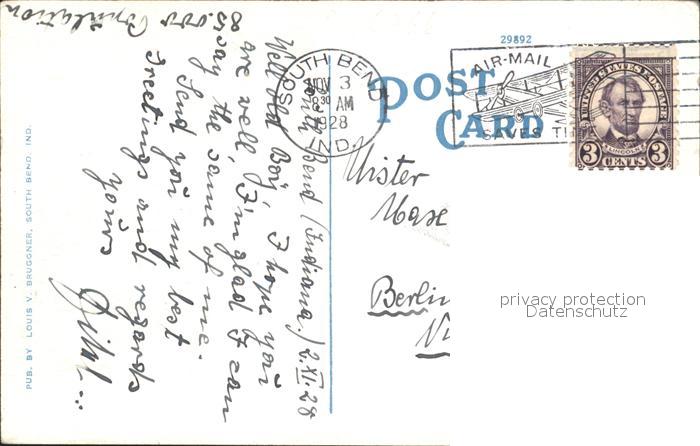 85.000 Population
South Bend (Indiana) 2.XI.28
Well old Boy, I hope you
are well, I'm glad I can
say the same of me.
Send you my best
Greetings and regards
yours
PUB. BY LOUIS V. BRUGGNER, SOUTH BEND, IND.
29892
POST
CARD
SOUTH BEND
NOV 3
8 30 AM
1928
IND.
AIR-MAIL
SAVES TI
UNITED STATES POSTAGE
LINCOLN
3 CENTS 3
Mister
Berlin
privacy protection
Datenschutz